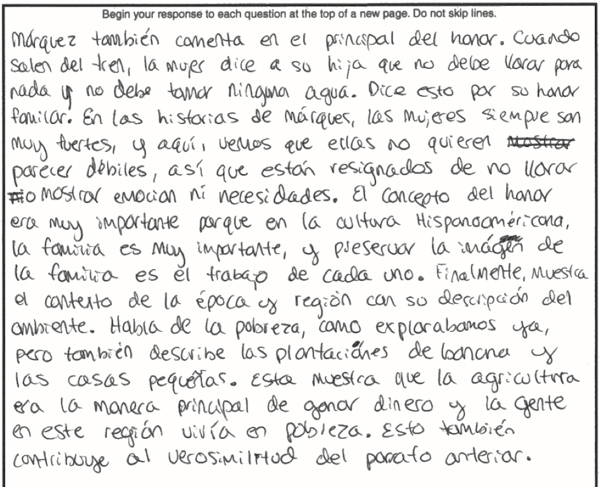 Begin your response to each question at the top of a new page. Do not skip lines.
Márquez también comenta en el principal del honor. Cuando
salen del tren, la mujer dice a su hija que no debe llorar para
nada y no debe tomar ninguna agua. Dice esto por su honor
familiar. En las historias de Márques, las mujeres siempre son
muy fuertes, y aquí, vemos que ellas no quieren mostrar
parecer débiles, así que están resignados de no llorar
o mostrar emocion ni necesidades. El concepto del honor
era muy importante porque en la cultura Hispanoaméricana,
la familia es muy importante, y preservar la imágen de
la familia es el trabajo de cada uno. Finalmente, muestra
el contexto de la época y región con su descripción del
ambiente. Habla de la pobreza, como explorabamos ya,
pero también describe las plantaciónes de banana y
las casas pequeñas. Esta muestra que la agricultura
era la manera principal de ganar dinero y la gente
en este región vivía en pobleza. Esto también
contribuye al verosimilitud del parrafo anterior.